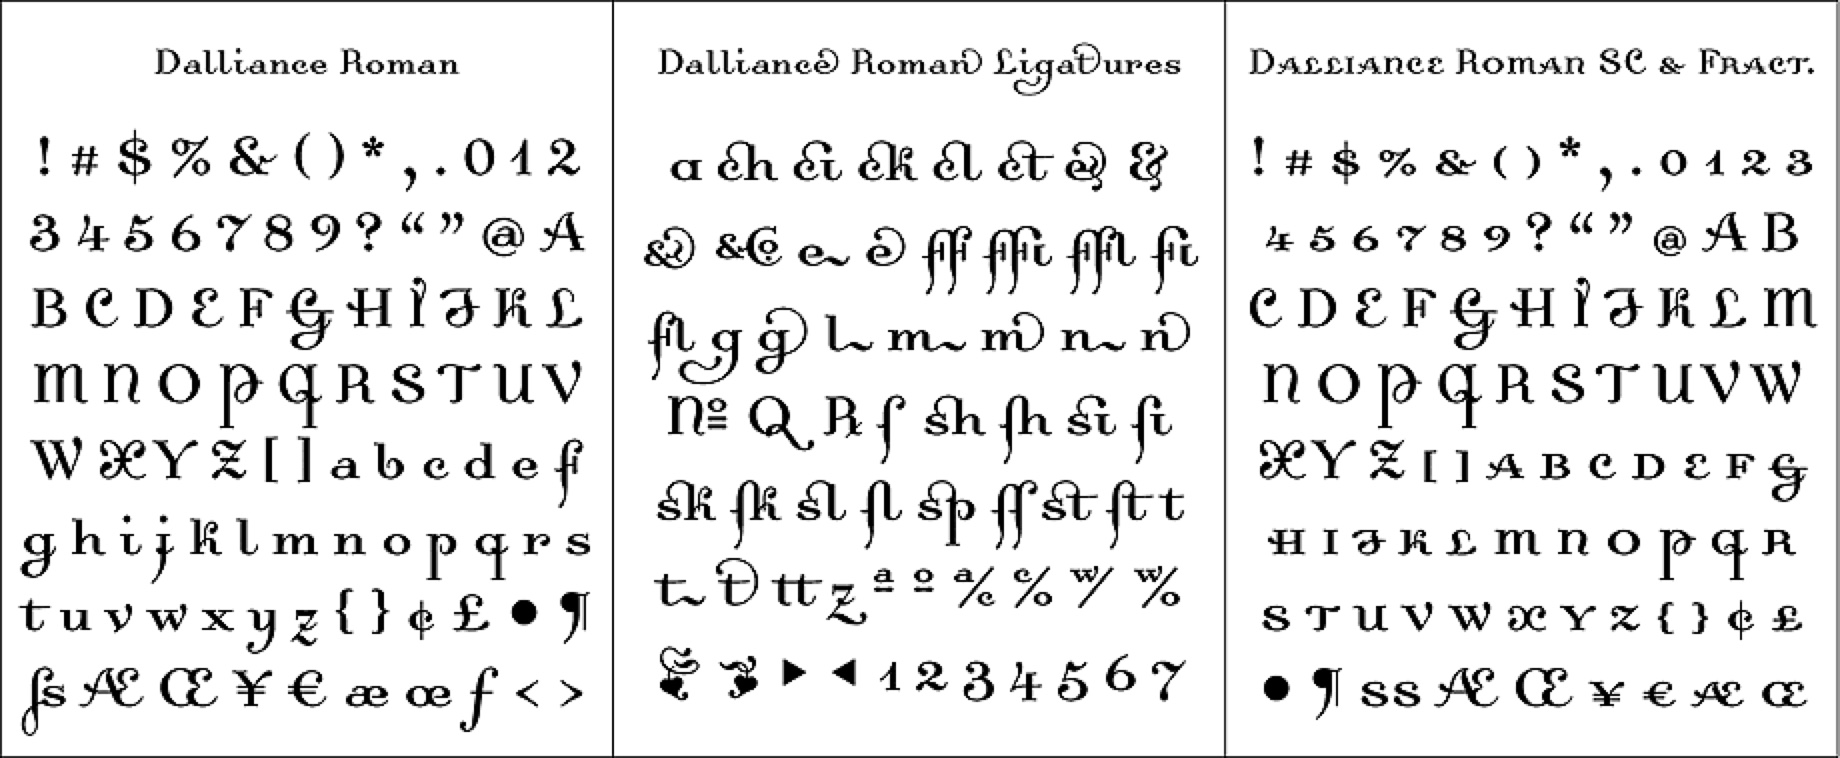 Dalliance Roman
! # $ % & ( ) * , . 0 1 2
3 4 5 6 7 8 9 ? “ ” @ A
B C D E F G H I J K L
M N O P Q R S T U V
W X Y Z [ ] a b c d e f
g h i j k l m n o p q r s
t u v w x y z { } ¢ £ • ¶
ß Æ Œ ¥ € æ œ ƒ < >
Dalliance Roman Ligatures
a ch ci ck cl ct &
& &Co e e ff ffi ffl fi
fl g g l m m n n
№ Q ℞ ſ sh ſh si ſi
sk ſk sl ſl sp ſſ st ſt t
t t tt z ª º a/c c/o w/ w/o
► ◄ 1 2 3 4 5 6 7
Dalliance Roman SC & Fract.
! # $ % & ( ) * , . 0 1 2 3
4 5 6 7 8 9 ? “ ” @ A B
C D E F G H I J K L M
N O P Q R S T U V W
X Y Z [ ] A B C D E F G
H I J K L M N O P Q R
S T U V W X Y Z { } ¢ £
• ¶ SS Æ Œ ¥ € Æ Œ